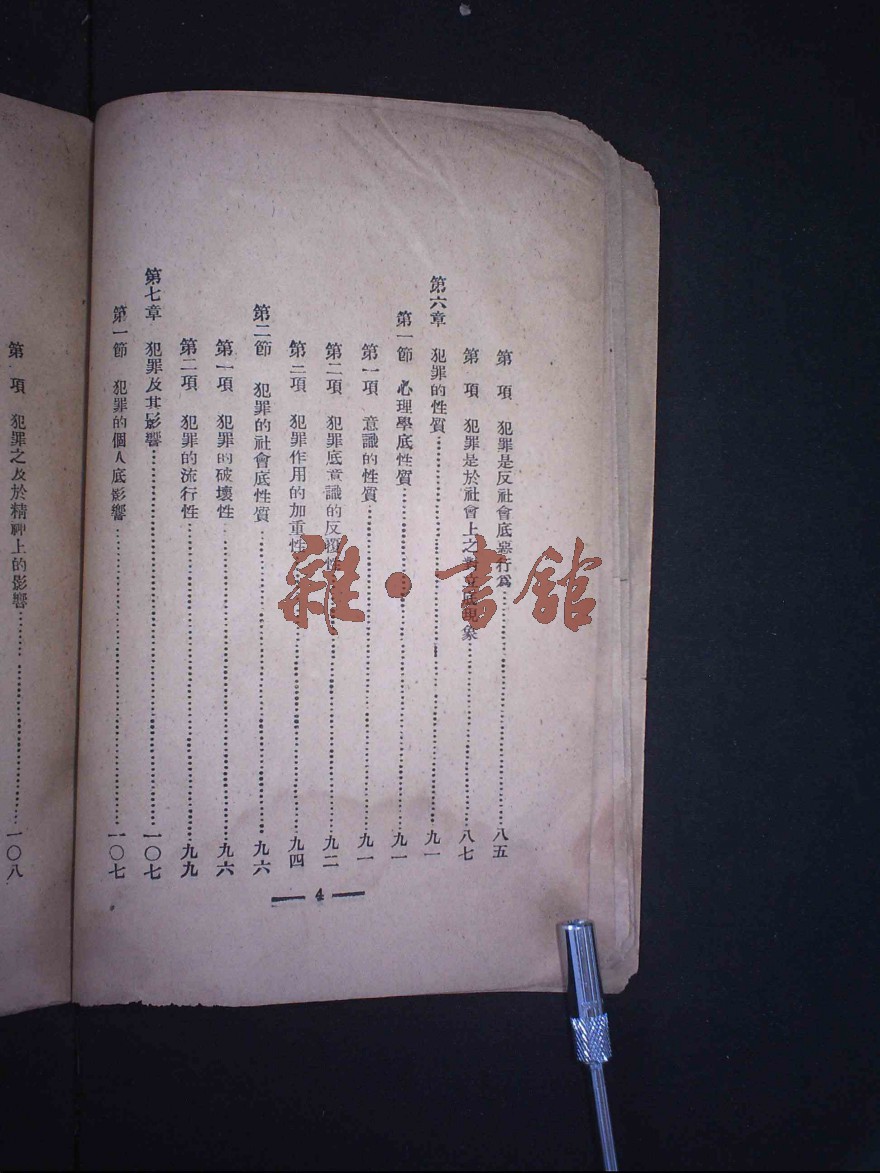 第 項 犯罪是反社會底惡行爲……八五
第 項 犯罪是於社會上之對立底現象……八七
第六章 犯罪的性質……九一
第一節 心理學底性質……九一
第一項 意識的性質……九一
第二項 犯罪底意識的反覆性……九二
第二項 犯罪作用的加重性……九四
第二節 犯罪的社會底性質……九六
第一項 犯罪的破壞性……九六
第二項 犯罪的流行性……九九
第七章 犯罪及其影響……一〇七
第一節 犯罪的個人底影響……一〇七
— 4 —
第 項 犯罪之及於精神上的影響……一〇八
雜·書館